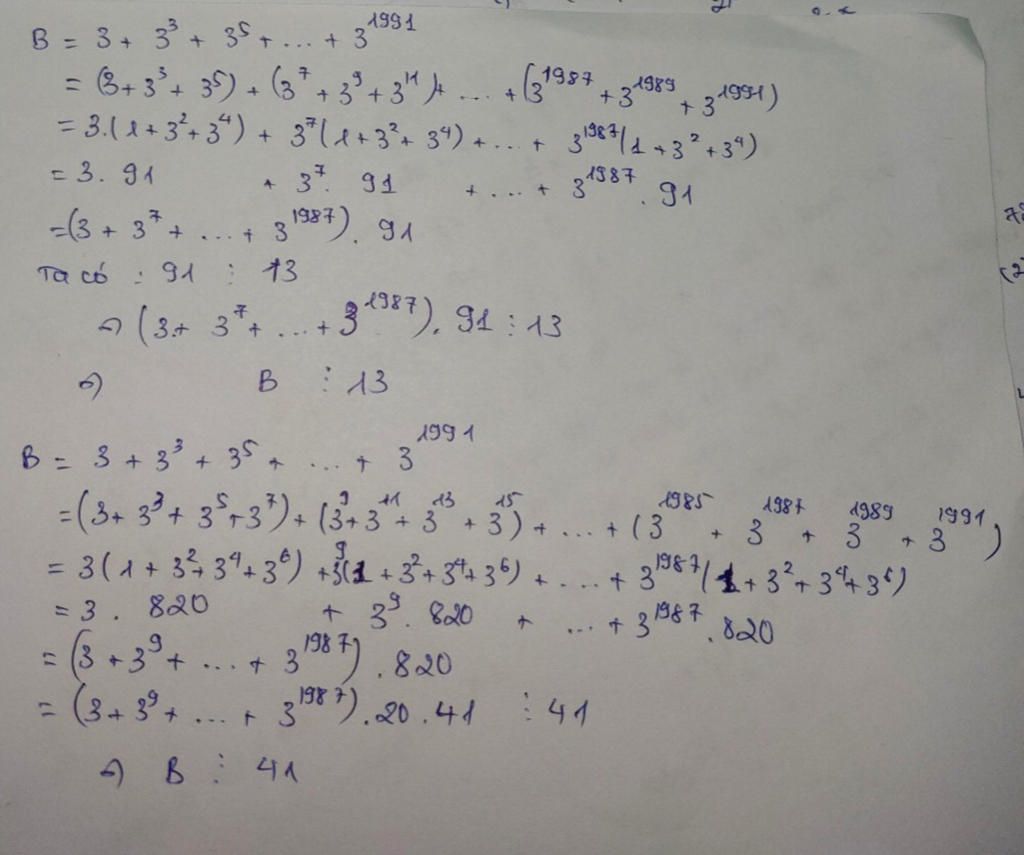 B = 3 + 3³ + 3⁵ + ... + 3¹⁹⁹¹
= (3 + 3³ + 3⁵) + (3⁷ + 3⁹ + 3¹¹) + ... + (3¹⁹⁸⁷ + 3¹⁹⁸⁹ + 3¹⁹⁹¹)
= 3.(1 + 3² + 3⁴) + 3⁷(1 + 3² + 3⁴) + ... + 3¹⁹⁸⁷(1 + 3² + 3⁴)
= 3. 91 + 3⁷. 91 + ... + 3¹⁹⁸⁷. 91
= (3 + 3⁷ + ... + 3¹⁹⁸⁷). 91
Ta có : 91 ⋮ 13
⇒ (3 + 3⁷ + ... + 3¹⁹⁸⁷). 91 ⋮ 13
⇒ B ⋮ 13
B = 3 + 3³ + 3⁵ + ... + 3¹⁹⁹¹
= (3 + 3³ + 3⁵ + 3⁷) + (3⁹ + 3¹¹ + 3¹³ + 3¹⁵) + ... + (3¹⁹⁸⁵ + 3¹⁹⁸⁷ + 3¹⁹⁸⁹ + 3¹⁹⁹¹)
= 3(1 + 3² + 3⁴ + 3⁶) + 3⁹(1 + 3² + 3⁴ + 3⁶) + ... + 3¹⁹⁸⁷(1 + 3² + 3⁴ + 3⁶)
= 3. 820 + 3⁹. 820 + ... + 3¹⁹⁸⁷. 820
= (3 + 3⁹ + ... + 3¹⁹⁸⁷). 820
= (3 + 3⁹ + ... + 3¹⁹⁸⁷). 20. 41 ⋮ 41
⇒ B ⋮ 41